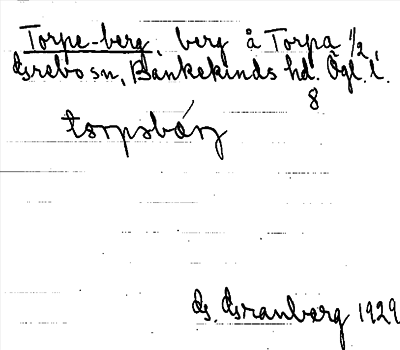 Torpe-berg, berg å Torpa 1/2,
Grebo sn, Bankekinds hd. Ögl. l.
8
torpsbárj
G. Granberg 1929